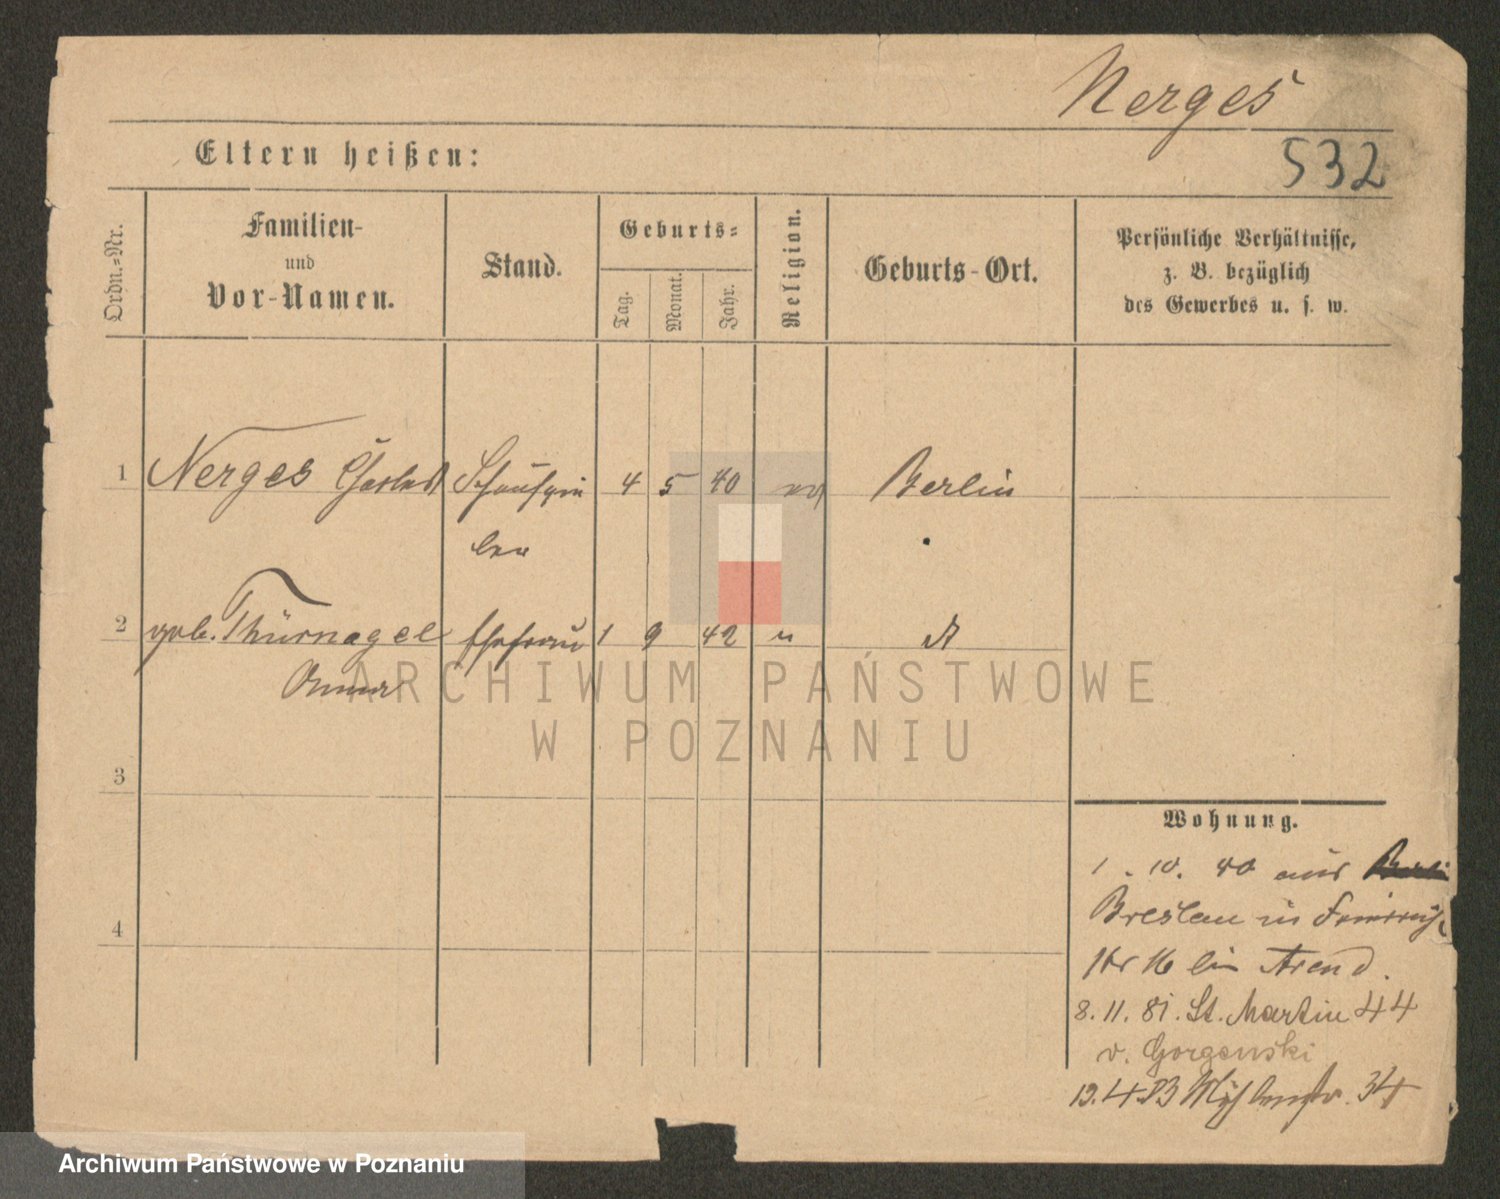 Nerges
532
Eltern heißen:
Ordn.=Nr.
Familien-
und
Vor-Namen.
Stand.
Geburts=
Tag.
Monat.
Jahr.
Religion.
Geburts-Ort.
Persönliche Verhältnisse,
z. B. bezüglich
des Gewerbes u. s. w.
1 Nerges Schauspie 4 5 40 ev Berlin
ler
2 geb. Thürnagel Ehefrau 1 9 42 "
Anna
ARCHIWUM PAŃSTWOWE
W POZNANIU
3
4
Wohnung.
1. 10. 80 aus
Breslau in
16 bei Arend.
8. 11. 81. St. Martin 44
v. Gorzenski
13. 4. 83 Mühlenstr. 34
Archiwum Państwowe w Poznaniu